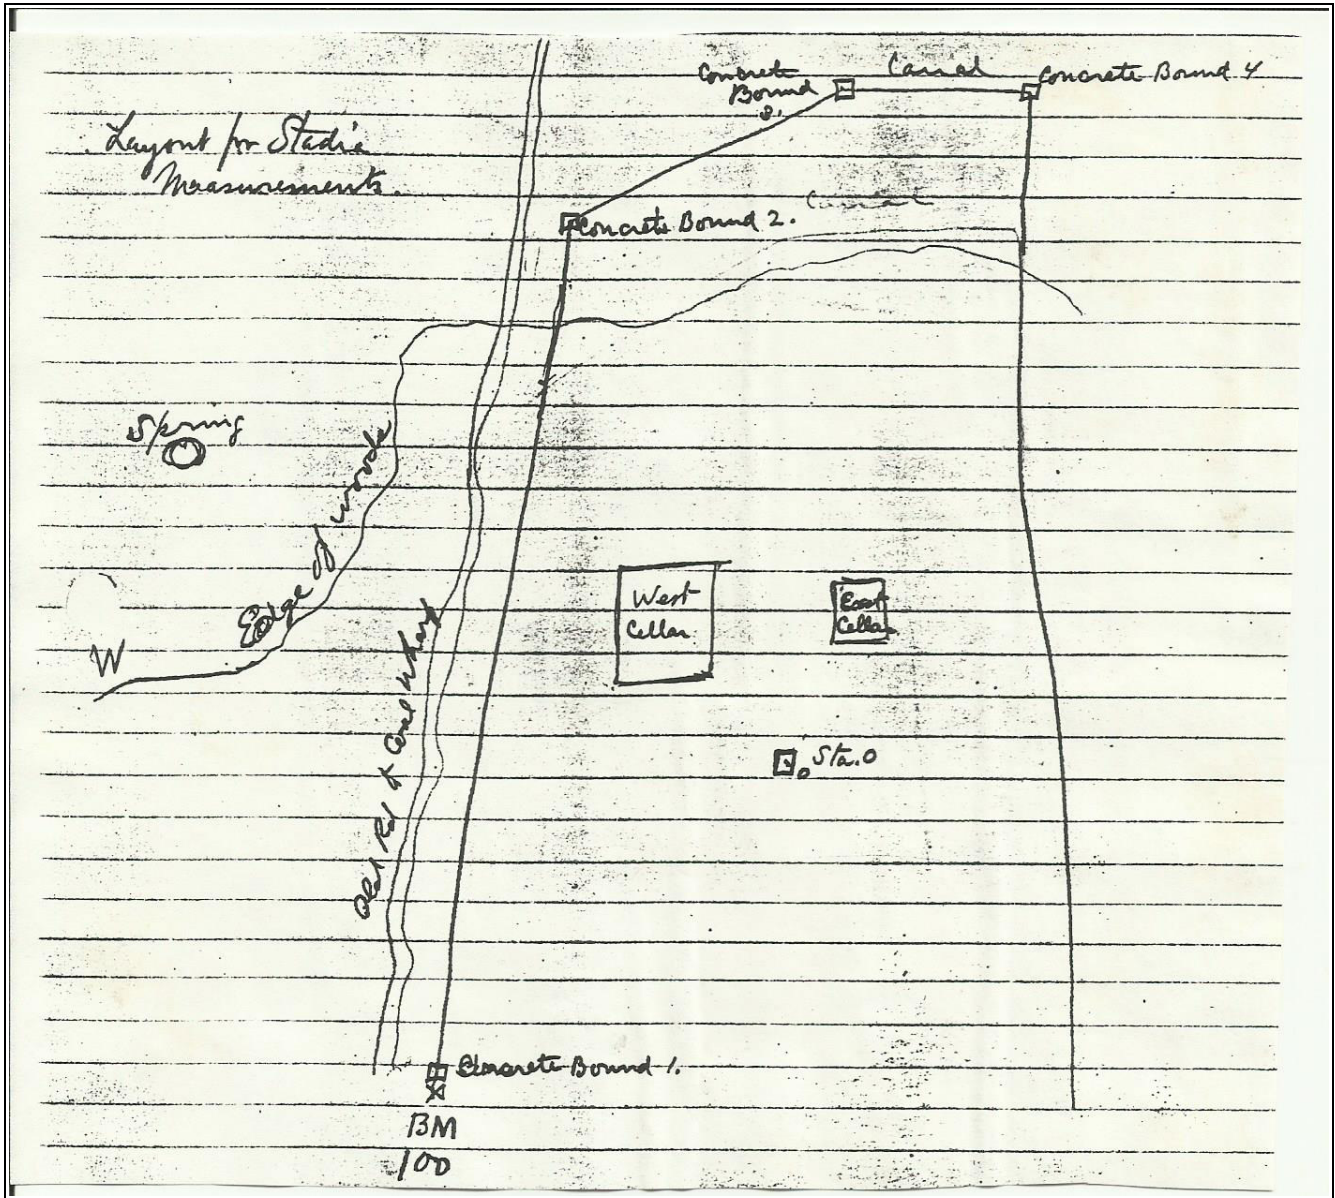 Layout for Stadia
Measurements.
Concrete
Bound
3.
Canal
Concrete Bound 4
Concrete Bound 2.
Canal
Spring
Edge of woods
W
West
Cellar
East
Cellar
Sta. 0
Old Rd to Coal Wharf
Concrete Bound 1.
BM
100